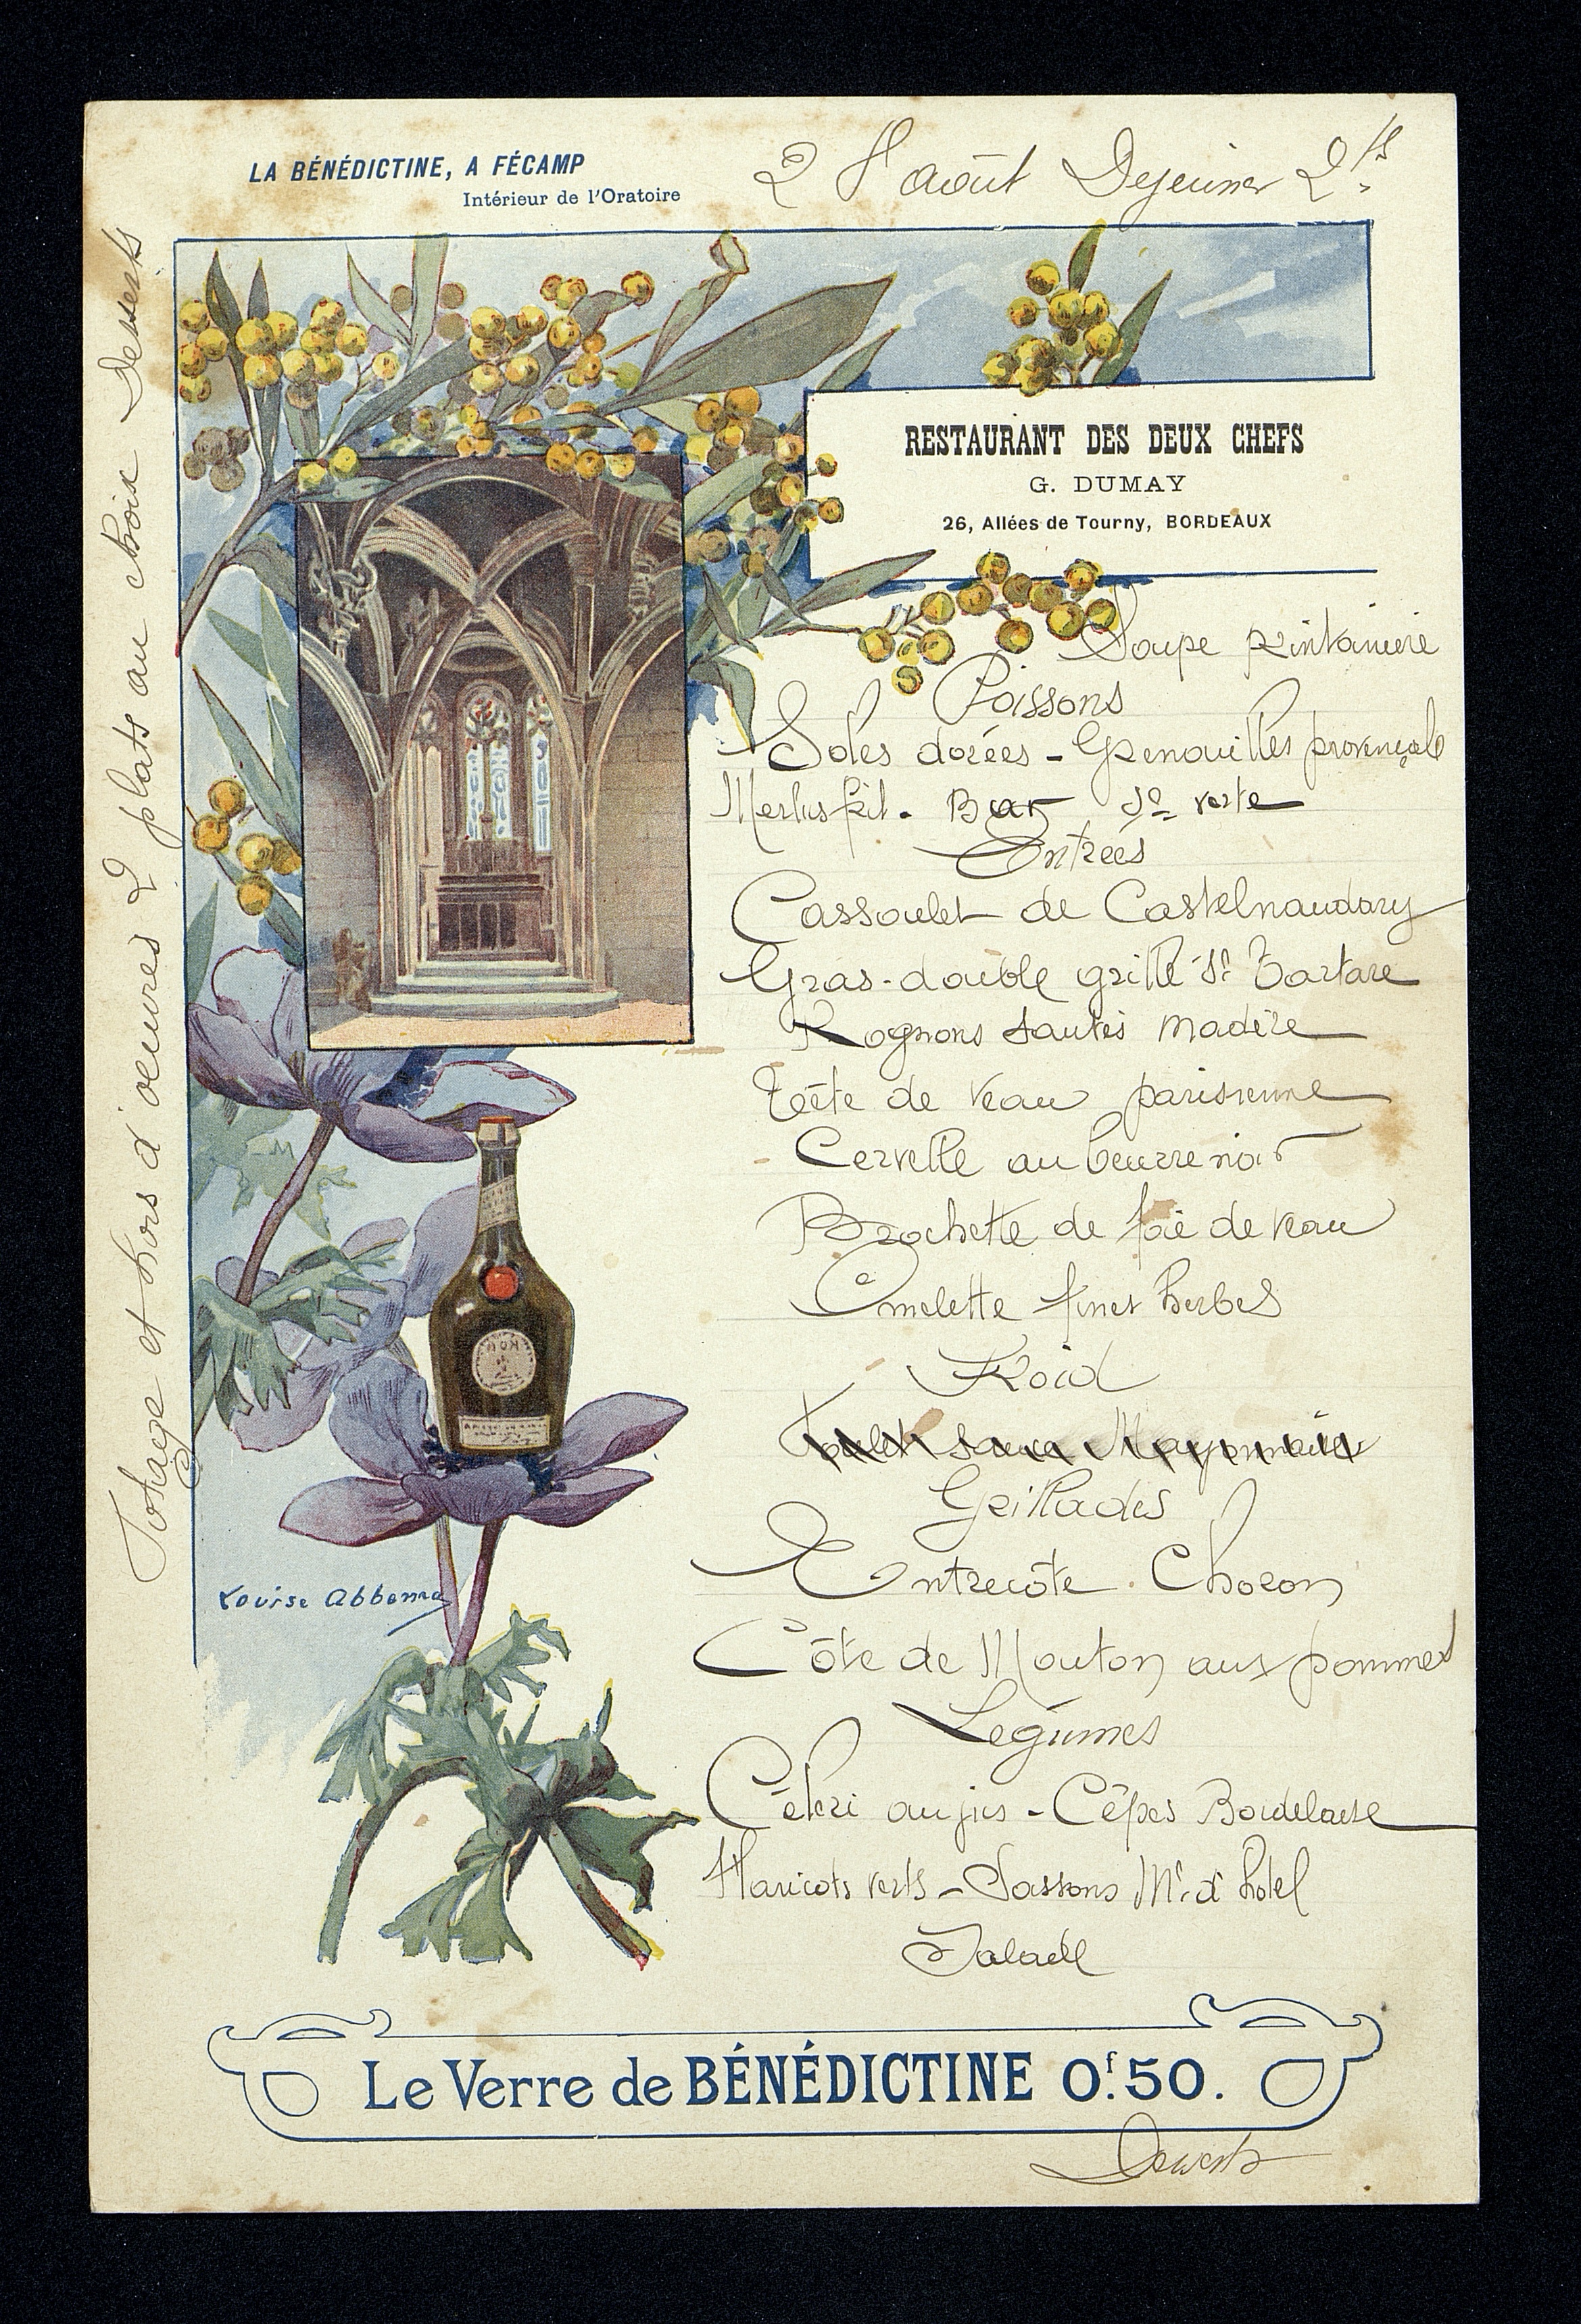 LA BÉNÉDICTINE, A FÉCAMP
Intérieur de l'Oratoire
2 août Dejeuner 2 fs
RESTAURANT DES DEUX CHEFS
G. DUMAY
26, Allées de Tourny, BORDEAUX
Soupe printanière
Poissons
Soles dorées - Grenouilles provençale
Merlus frit. Bar Sce verte
Entrées
Cassoulet de Castelnaudary
Gras-double grillé Sce Tartare
Rognons sautés madère
Tête de veau parisienne
Cervelle au beurre noir
Brochette de foie de veau
Omelette fines herbes
Froid
Poulet sauce Mayonnaise
Grillades
Entrecôte Choron
Côte de Mouton aux pommes
Légumes
Céleri au jus - Cêpes Bordelaise
Haricots verts - Md'hotel
Salade
Le Verre de BÉNÉDICTINE 0f.50.
Desserts
Potage et hors d'oeuvres 2 plats au choix Desserts
Louise Abbema